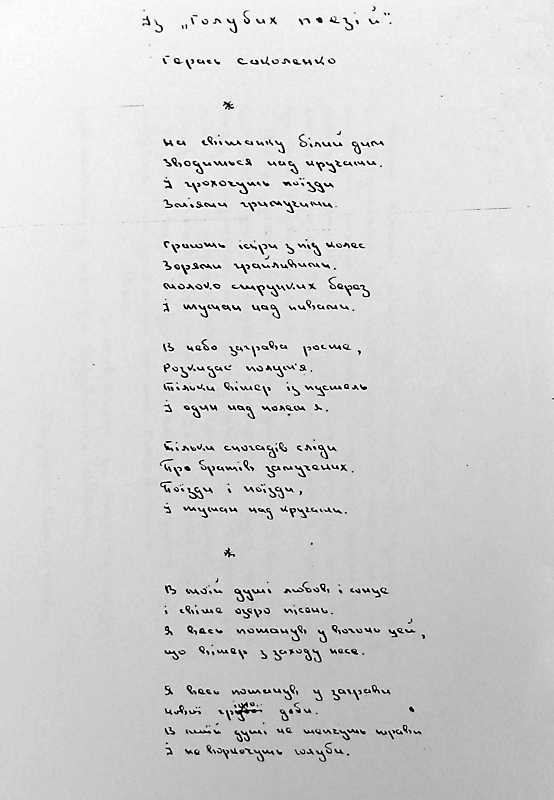 Із „Голубих поезій".
Герась Соколенко
*
На світанку білий дим
Зводиться над кручами.
І грохочуть поїзди
Зміями гримучими.
Грають іскри з під колес
Зорями грайливими.
Молоко струнких берез
І туман над нивами.
В небо заграва росте,
Розкидає полум'я.
Тільки вітер із пустель
І один над полем я.
Тільки спогадів сліди
Про братів замучених.
Поїзди і поїзди,
І туман над кручами.
*
В моїй душі любов і сонце
і світе озеро пісень.
Я весь потанув у вогонь цей,
що вітер з заходу несе.
Я весь потанув у заграви
нової доби.
В моїй душі не шепчуть трави
І не воркочуть голуби.